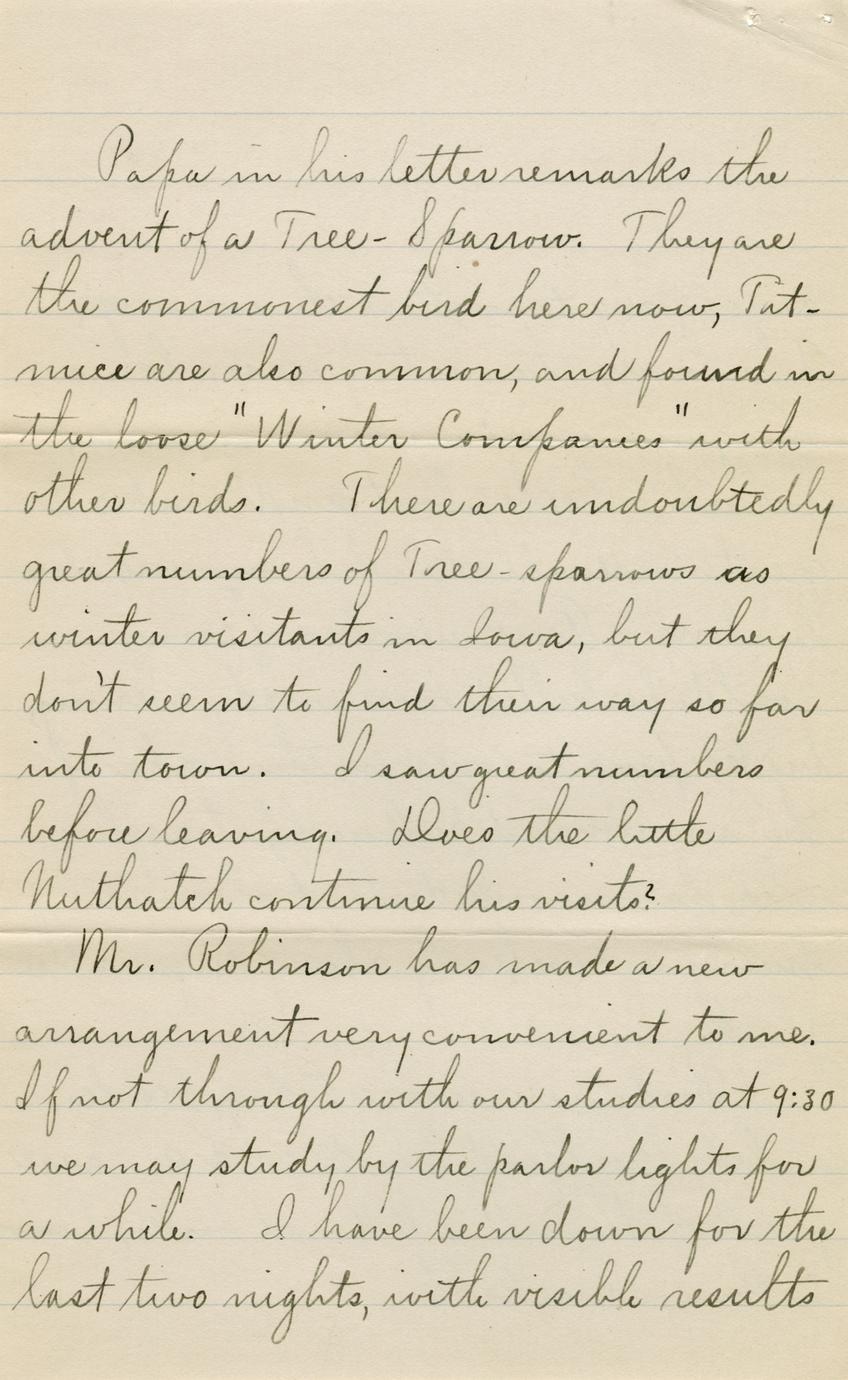 Papa in his letter remarks the
advent of a Tree-Sparrow. They are
the commonest bird here now, Tit-
mice are also common, and found in
the loose "Winter Companies" with
other birds. There are undoubtedly
great numbers of Tree-sparrows as
winter visitants in Iowa, but they
don't seem to find their way so far
into town. I saw great numbers
before leaving. Does the little
Nuthatch continue his visits?
Mr. Robinson has made a new
arrangement very convenient to me.
If not through with our studies at 9:30
we may study by the parlor lights for
a while. I have been down for the
last two nights, with visible results